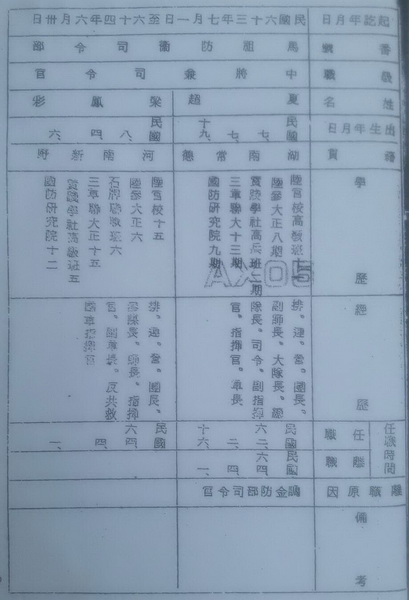 起訖年月日
民國六十三年七月一日至六十四年六月卅日
番號
馬祖防衛司令部
職級
中將兼司令官
姓名
夏超
梁鳳彩
出生年月日
民國
民國
八、四、六、
籍貫
湖南常德
河南新野
學歷
陸參大正八期
實踐學社高兵班二期
三軍聯大十三期
國防研究院九期
陸官校十五
陸參六正六
石牌聯戰班六
三軍聯大正十五
實踐學社高級班五
國防研究院十二
經歷
排、連、營、團長、
副師長、大隊長、總
隊長、司令、副指揮
官、指揮官、軍長
排、連、營、團長、
參謀長、師長、指揮
官、副軍長、反共救
國軍指揮官
任職時間
任職
離職
民國
六二、
民國
六四、
四、
一、
民國
六四、
四、
一、
離職原因
調金防部司令官
備考
AXO5